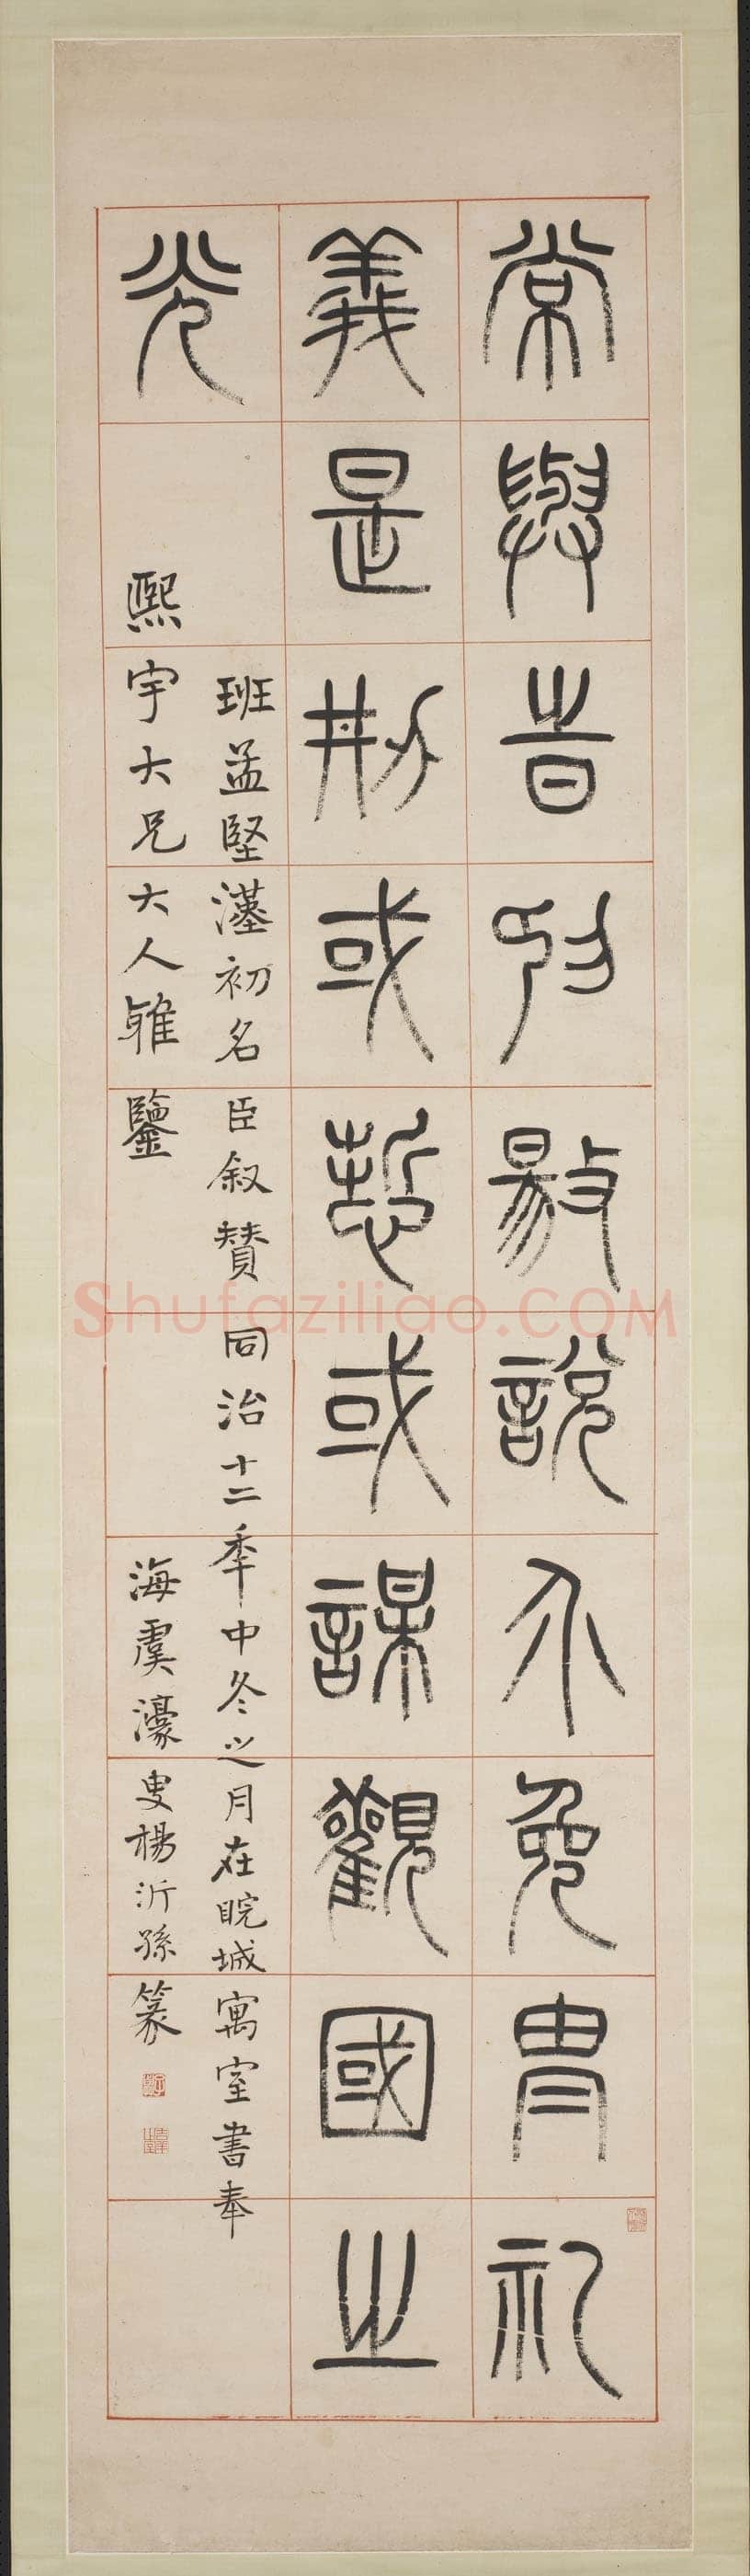 常與旹抑敭說介免冑礼
義是刱或悊或謀觀國之
光
班孟堅漢初名臣叙贊同治十二秊中冬之月在晥城寓室書奉
熙宇大兄大人雅鑒
海虞濠叟楊沂孫篆
Shufaziliao.COM